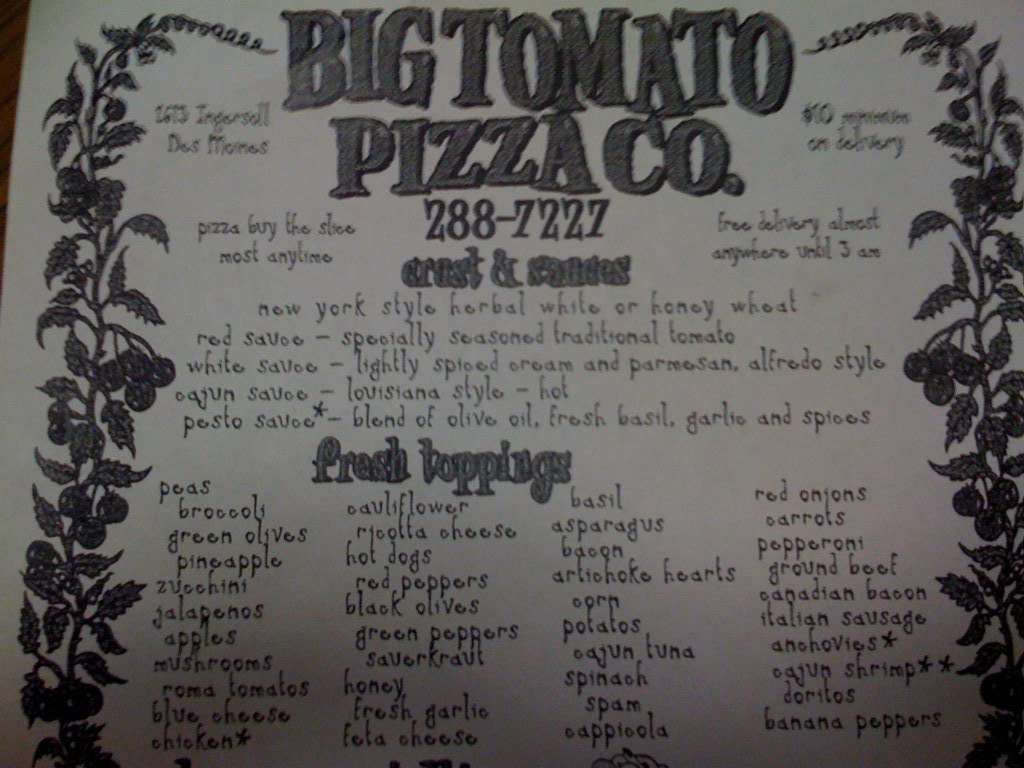 BIG TOMATO
PIZZA CO.
2613 Ingersoll
Des Moines
$10 minimum
on delivery
288-7227
pizza buy the slice
most anytime
free delivery almost
anywhere until 3 am
crust & sauces
new york style herbal white or honey wheat
red sauce - specially seasoned traditional tomato
white sauce - lightly spiced cream and parmesan, alfredo style
cajun sauce - louisiana style - hot
pesto sauce* - blend of olive oil, fresh basil, garlic and spices
fresh toppings
peas
broccoli
green olives
pineapple
zucchini
jalapenos
apples
mushrooms
roma tomatos
blue cheese
chicken*
cauliflower
ricotta cheese
hot dogs
red peppers
black olives
green peppers
sauerkraut
honey
fresh garlic
feta cheese
basil
asparagus
bacon
artichoke hearts
corn
potatos
cajun tuna
spinach
spam
cappicola
red onions
carrots
pepperoni
ground beef
canadian bacon
italian sausage
anchovies*
cajun shrimp**
doritos
banana peppers